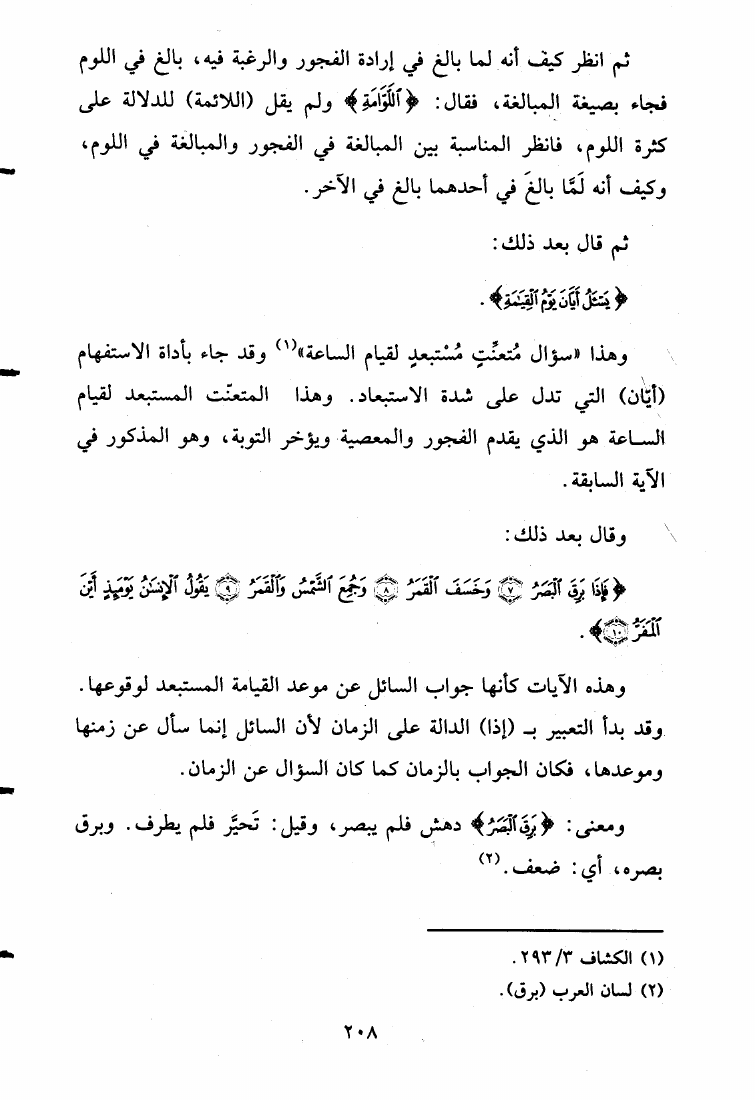 ثم انظر كيف أنه لما بالغ في إرادة الفجور والرغبة فيه، بالغ في اللوم
فجاء بصيغة المبالغة، فقال: ﴿ٱللَّوَّامَةِ﴾ ولم يقل (اللائمة) للدلالة على
كثرة اللوم، فانظر المناسبة بين المبالغة في الفجور والمبالغة في اللوم،
وكيف أنه لَمَّا بالغَ في أحدهما بالغ في الآخر.
ثم قال بعد ذلك:
﴿يَسْـَٔلُ أَيَّانَ يَوْمُ ٱلْقِيَـٰمَةِ﴾.
وهذا «سؤال مُتعنِّتٍ مُسْتبعدٍ لقيام الساعة»(١) وقد جاء بأداة الاستفهام
(أيّان) التي تدل على شدة الاستبعاد. وهذا المتعنّت المستبعد لقيام
الساعة هو الذي يقدم الفجور والمعصية ويؤخر التوبة، وهو المذكور في
الآية السابقة.
وقال بعد ذلك:
﴿فَإِذَا بَرِقَ ٱلْبَصَرُ ٧ وَخَسَفَ ٱلْقَمَرُ ٨ وَجُمِعَ ٱلشَّمْسُ وَٱلْقَمَرُ ٩ يَقُولُ ٱلْإِنسَـٰنُ يَوْمَئِذٍ أَيْنَ
ٱلْمَفَرُّ ١٠﴾.
وهذه الآيات كأنها جواب السائل عن موعد القيامة المستبعد لوقوعها.
وقد بدأ التعبير بـ (إذا) الدالة على الزمان لأن السائل إنما سأل عن زمنها
وموعدها، فكان الجواب بالزمان كما كان السؤال عن الزمان.
ومعنى: ﴿بَرِقَ ٱلْبَصَرُ﴾ دهش فلم يبصر، وقيل: تَحيَّر فلم يطرف. وبرق
بصره، أي: ضعف.(٢)
(١) الكشاف ٣/ ٢٩٣.
(٢) لسان العرب (برق).
٢٠٨